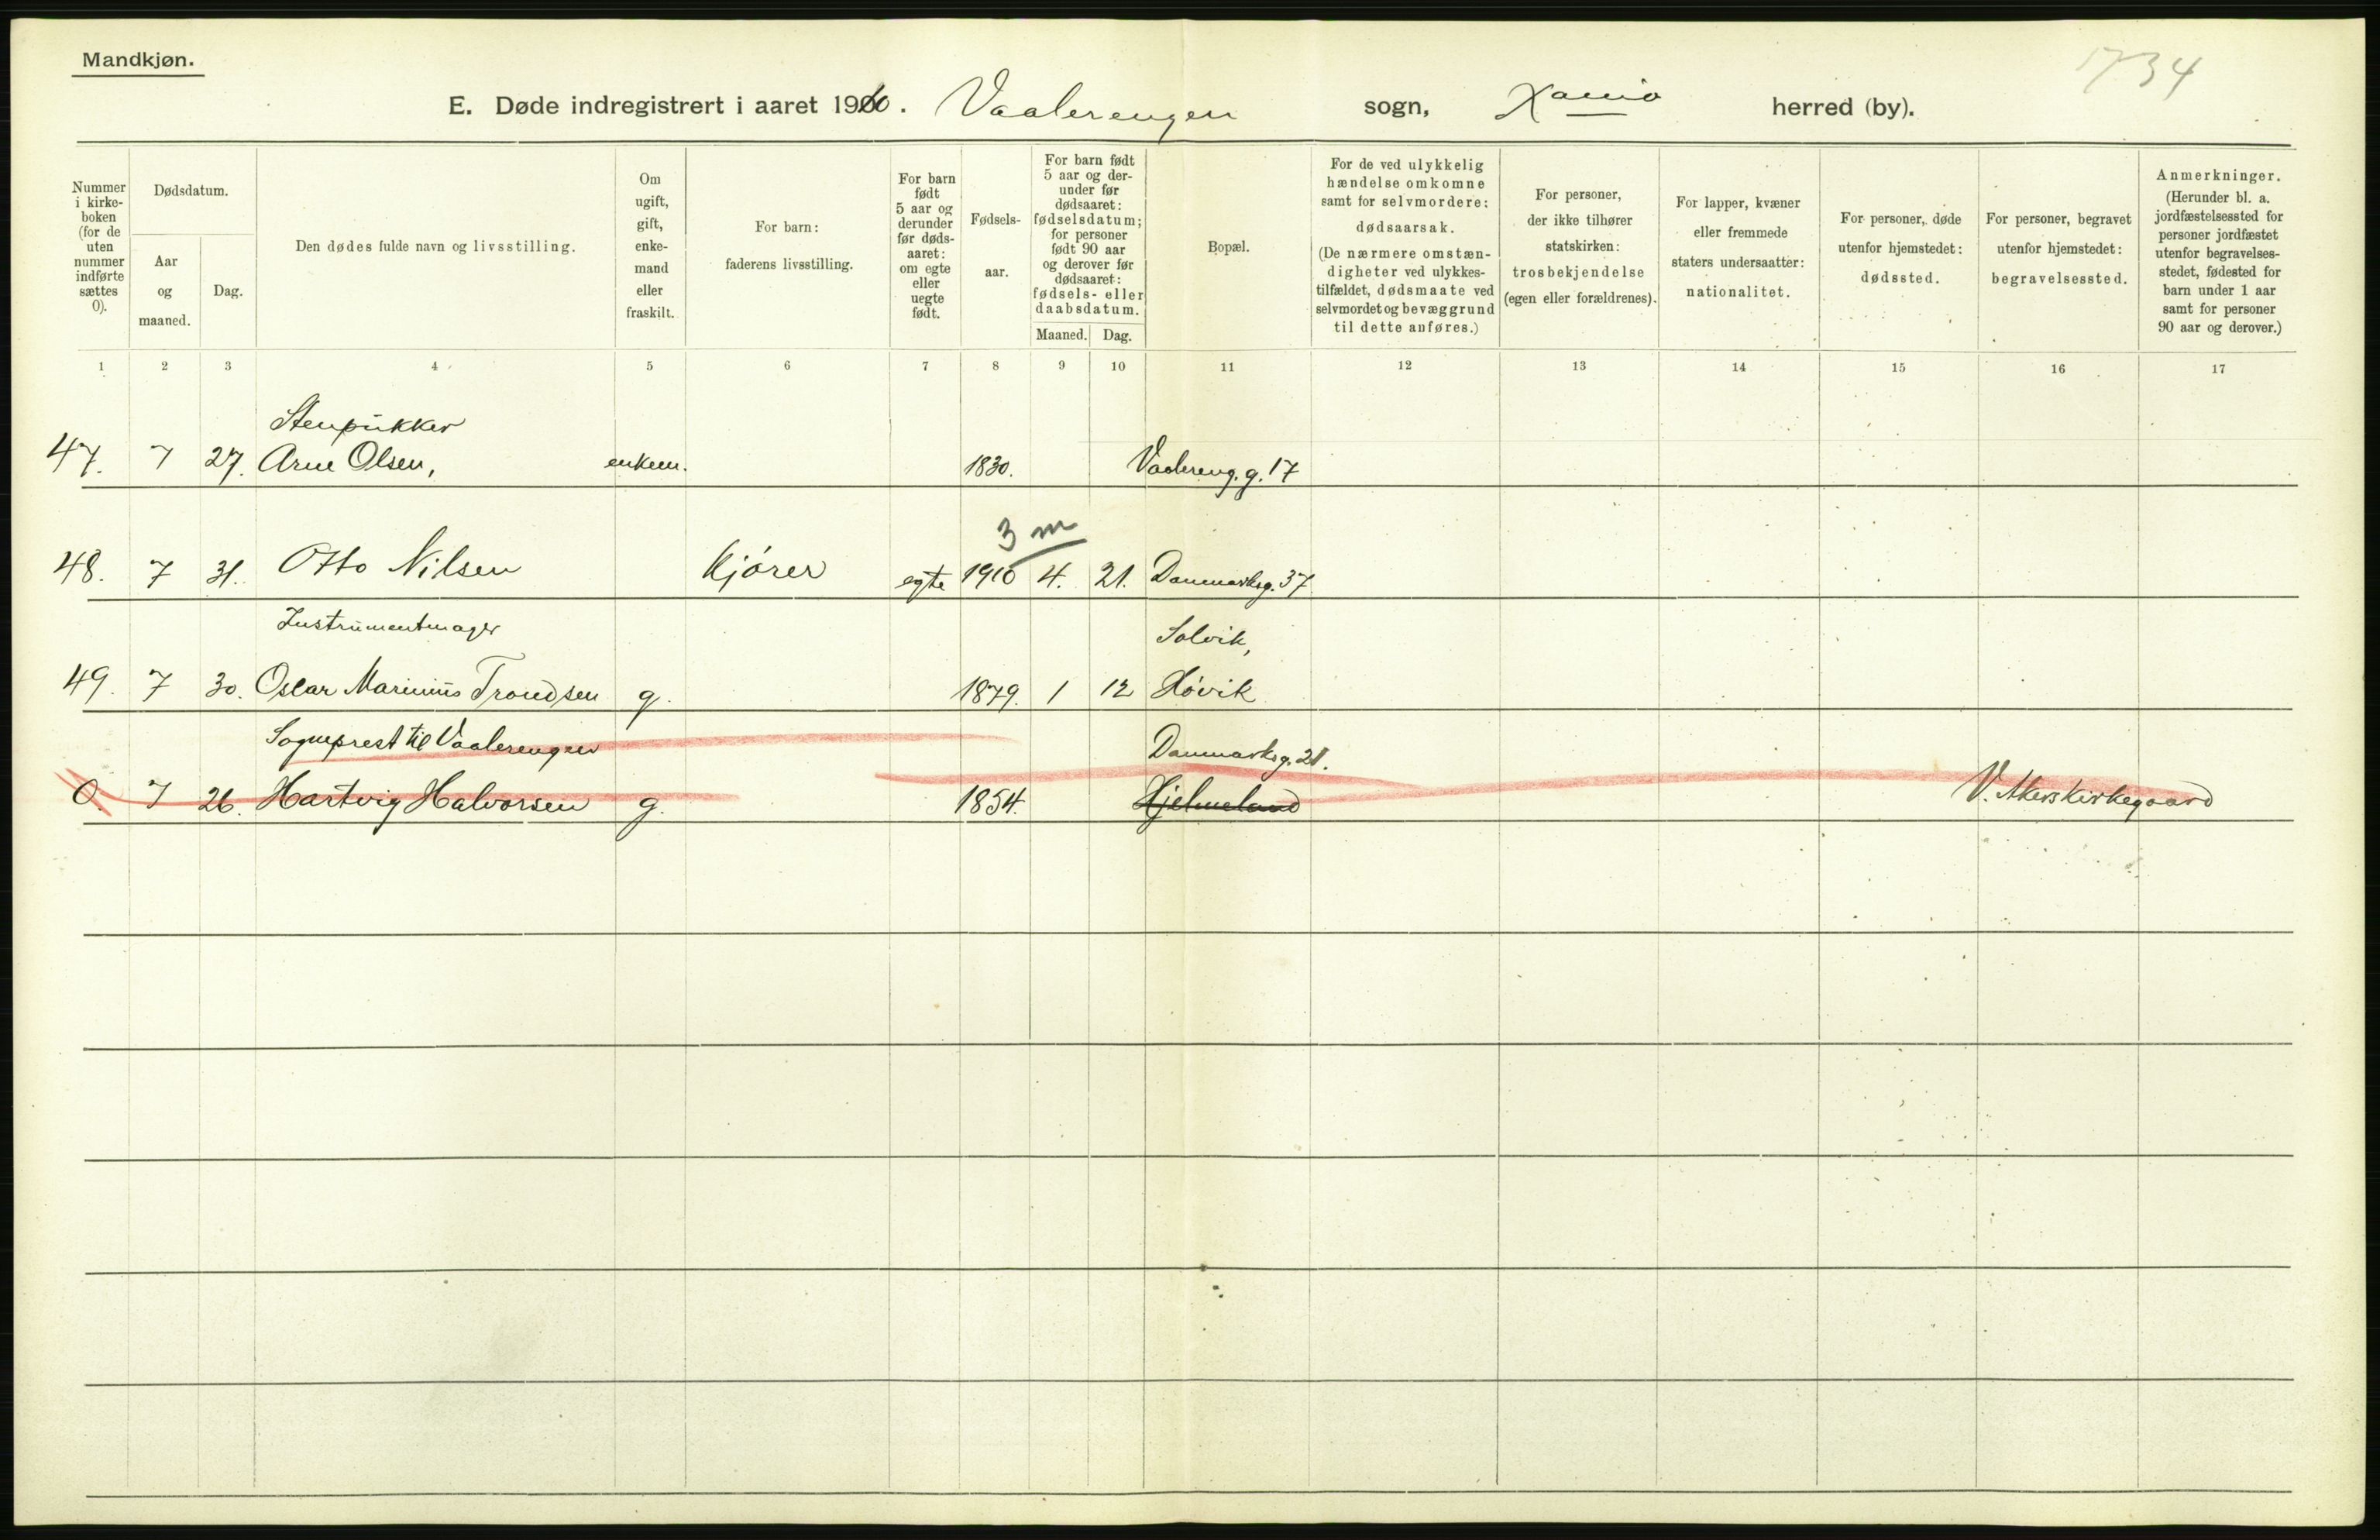 Mandkjøn.
1734
E. Døde indregistrert i aaret 1910. Vaalerengen sogn, Xania herred (by).
Nummer i kirkeboken (for de uten nummer indførte sættes 0).
Dødsdatum.
Aar og maaned.
Dag.
Den dødes fulde navn og livsstilling.
Om ugift, gift, enkemand eller fraskilt.
For barn: faderens livsstilling.
For barn født 5 aar og derunder før dødsaaret: om egte eller uegte født.
Fødselsaar.
For barn født 5 aar og derunder før dødsaaret: fødselsdatum; for personer født 90 aar og derover før dødsaaret: fødsels- eller daabsdatum.
Maaned. Dag.
Bopæl.
For de ved ulykkelig hændelse omkomne samt for selvmordere: dødsaarsak.
(De nærmere omstændigheter ved ulykkestilfældet, dødsmaate ved selvmordet og bevæggrund til dette anføres.)
For personer, der ikke tilhører statskirken: trosbekjendelse (egen eller forældrenes).
For lapper, kvæner eller fremmede staters undersaatter: nationalitet.
For personer, døde utenfor hjemstedet: dødssted.
For personer, begravet utenfor hjemstedet: begravelsessted.
Anmerkninger.
(Herunder bl. a. jordfæstelsessted for personer jordfæstet utenfor begravelsesstedet, fødested for barn under 1 aar samt for personer 90 aar og derover.)
1 2 3 4 5 6 7 8 9 10 11 12 13 14 15 16 17
Stenpukker
47. 7 27. Arne Olsen, enkem. 1830. Vaalereng.g. 17
3 m
48. 7 31. Otto Nilsen Kjører egte 1910 4. 21. Danmarksg. 37
Instrumentmager Solvik,
49. 7 30. Oscar Marinius Trondsen g. 1879. 1 12 Høvik
Sogneprest til Vaalerengen Danmarksg. 21.
0. 7 26. Hartvig Halvorsen g. 1854. Hjelmeland V. Akers kirkegaard